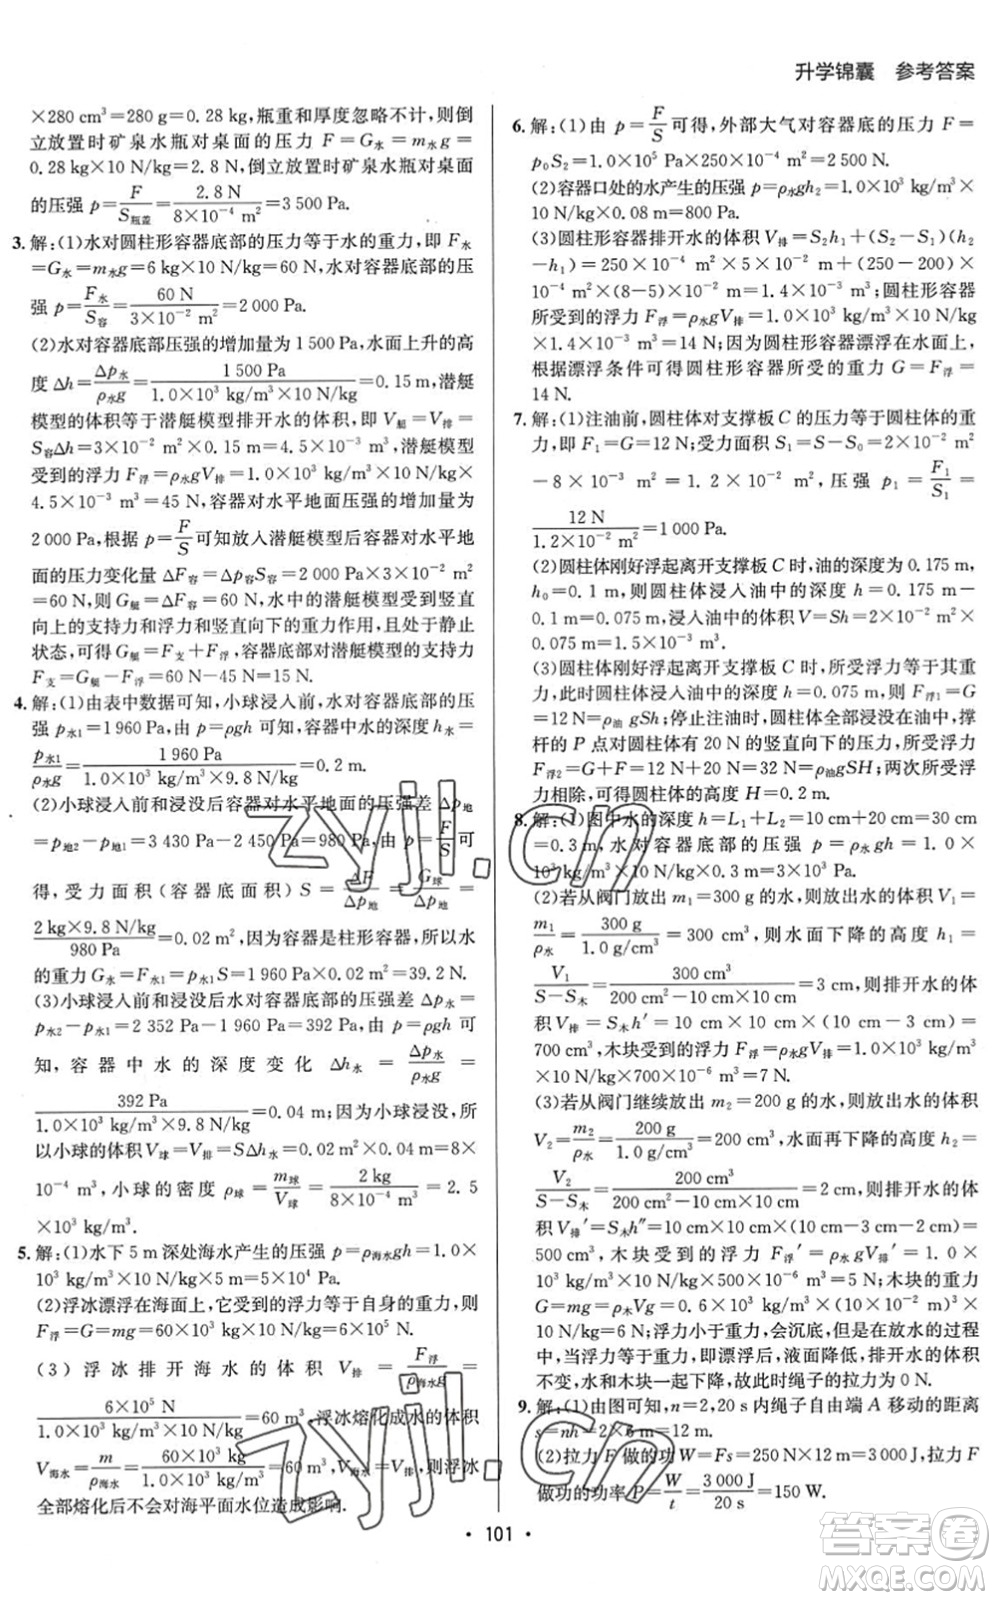 升学锦囊 参考答案
×280 cm³=280 g=0.28 kg,瓶重和厚度忽略不计,则倒
立放置时矿泉水瓶对桌面的压力 F=G水=m水g=
0.28 kg×10 N/kg=2.8 N,倒立放置时矿泉水瓶对桌面
的压强 p=F/S瓶盖=2.8 N/(8×10⁻⁴ m²)=3 500 Pa.
3. 解:(1)水对圆柱形容器底部的压力等于水的重力,即 F水
=G水=m水g=6 kg×10 N/kg=60 N,水对容器底部的压
强 p=F水/S容=60 N/(3×10⁻² m²)=2 000 Pa.
(2)水对容器底部压强的增加量为 1 500 Pa,水面上升的高
度 Δh=Δp水/ρ水g=1 500 Pa/(1.0×10³ kg/m³×10 N/kg)=0.15 m,潜艇
模型的体积等于潜艇模型排开水的体积,即 V艇=V排=
S容Δh=3×10⁻² m²×0.15 m=4.5×10⁻³ m³,潜艇模型
受到的浮力 F浮=ρ水gV排=1.0×10³ kg/m³×10 N/kg×
4.5×10⁻³ m³=45 N,容器对水平地面压强的增加量为
2 000 Pa,根据 p=F/S可知放入潜艇模型后容器对水平地
面的压力变化量 ΔF容=Δp容S容=2 000 Pa×3×10⁻² m²=
60 N,则 G艇=ΔF容=60 N,因为潜艇模型受到竖直
向上的支持力和浮力与竖直向下的重力作用,且处于静止
状态,可得 G艇=F支+F浮,容器底部对潜艇模型的支持力
F支=G艇-F浮=60 N-45 N=15 N.
4. 解:(1)由表中数据可知,小球浸入前,水对容器底部的压
强 p水1=1 960 Pa,由 p=ρgh 可知,容器中水的深度 h水1=
p水1/ρ水g=1 960 Pa/(1.0×10³ kg/m³×9.8 N/kg)=0.2 m.
(2)小球浸入前和浸没后容器对水平地面的压强差 Δp地
=p地2-p地1=3 430 Pa-2 450 Pa=980 Pa,由 p=F/S 可
得,受力面积(容器底面积)S=ΔF/Δp地=G球/Δp地=
2 kg×9.8 N/kg/980 Pa=0.02 m²,因为容器是柱形容器,所以水
的重力 G水=F水1=p水1S=1 960 Pa×0.02 m²=39.2 N.
(3)小球浸入前和浸没后水对容器底部的压强差 Δp水=
p水2-p水1=2 352 Pa-1 960 Pa=392 Pa,由 p=ρgh 可
知,容器中水的深度变化 Δh水=Δp水/ρ水g=
392 Pa/(1.0×10³ kg/m³×9.8 N/kg)=0.04 m;因为小球浸没,所
以小球的体积 V球=V排=SΔh水=0.02 m²×0.04 m=8×
10⁻⁴ m³,小球的密度 ρ球=m球/V球=2 kg/(8×10⁻⁴ m³)=2.5
×10³ kg/m³.
5. 解:(1)水下 5 m 深处海水产生的压强 p=ρ海水gh=1.0×
10³ kg/m³×10 N/kg×5 m=5×10⁴ Pa.
(2)浮冰漂浮在海面上,它受到的浮力等于自身的重力,则
F浮=G=mg=60×10³ kg×10 N/kg=6×10⁵ N.
(3)浮冰排开海水的体积 V排=F浮/ρ海水g=
6×10⁵ N/(1.0×10³ kg/m³×10 N/kg)=60 m³,浮冰熔化成水的体积
V海水=m/ρ海水=60×10³ kg/(1.0×10³ kg/m³)=60 m³,则 V海水=V排,则浮冰
全部熔化后不会对海平面水位造成影响.
6. 解:(1)由 p=F/S可得,外部大气对容器底的压力 F=
p₀S₂=1.0×10⁵ Pa×250×10⁻⁴ m²=2 500 N.
(2)容器口处的水产生的压强 p=ρ水gh₂=1.0×10³ kg/m³×
10 N/kg×0.08 m=800 Pa.
(3)圆柱形容器排开水的体积 V排=S₂h₁+(S₂-S₁)(h₂
-h₁)=250×10⁻⁴ m²×5×10⁻² m+(250-200)×
10⁻⁴ m²×(8-5)×10⁻² m=1.4×10⁻³ m³;圆柱形容器
所受到的浮力 F浮=ρ水gV排=1.0×10³ kg/m³×10 N/kg
×1.4×10⁻³ m³=14 N;因为圆柱形容器处于漂浮状态,
根据漂浮条件可得圆柱形容器所受的重力 G=F浮=
14 N.
7. 解:(1)注油前,圆柱体对支撑板 C 的压力等于圆柱体的重
力,即 F₁=G=12 N;受力面积 S₁=S-S₀=2×10⁻² m²
-8×10⁻³ m²=1.2×10⁻² m²,压强 p₁=F₁/S₁=
12 N/(1.2×10⁻² m²)=1 000 Pa.
(2)圆柱体刚好浮起离开支撑板 C 时,油的深度为 0.175 m,
h₀=0.1 m,则圆柱体浸入油中的深度 h=0.175 m-
0.1 m=0.075 m,浸入油中的体积 V=Sh=2×10⁻² m²
×0.075 m=1.5×10⁻³ m³.
(3)圆柱体刚好浮起离开支撑板 C 时,所受浮力等于重
力,此时圆柱体浸入油中的深度 h=0.075 m,则 F浮1=G=
12 N=ρ油gSh;停止注油时,圆柱体全部浸没在油中,撑
杆的 P 点对圆柱体有 20 N 的竖直向下的压力,所受浮力
F浮2=G+F压=12 N+20 N=32 N=ρ油gSH;两次浮力
相除,可得圆柱体的高度 H=0.2 m.
8. 解:(1)图中水的深度 h=L₁+L₂=10 cm+20 cm=30 cm
=0.3 m,水对容器底部的压强 p=ρ水gh=1.0×
10³ kg/m³×10 N/kg×0.3 m=3×10³ Pa.
(2)若从阀门放出 m₁=300 g 的水,则放出水的体积 V₁=
m₁/ρ水=300 g/(1.0 g/cm³)=300 cm³,则水面下降的高度 h₁=
V₁/(S-S木)=300 cm³/(200 cm²-10 cm×10 cm)=3 cm,则排开水的体
积 V排=S木h′=10 cm×10 cm×(10 cm-3 cm)=
700 cm³,木块受到的浮力 F浮=ρ水gV排=1.0×10³ kg/m³
×10 N/kg×700×10⁻⁶ m³=7 N.
(3)若从阀门继续放出 m₂=200 g 的水,则放出水的体积
V₂=m₂/ρ水=200 g/(1.0 g/cm³)=200 cm³,水面再下降的高度 h₂=
V₂/(S-S木)=200 cm³/(200 cm²-10 cm×10 cm)=2 cm,则排开水的体
积 V排′=S木h″=10 cm×10 cm×(10 cm-3 cm-2 cm)=
500 cm³,木块受到的浮力 F浮′=ρ水gV排′=1.0×
10³ kg/m³×10 N/kg×500×10⁻⁶ m³=5 N;木块的重力
G=mg=ρ木Vg=0.6×10³ kg/m³×(10×10⁻² m)³×10
N/kg=6 N;浮力小于重力,会沉底,但由于在放水的过程
中,当浮力等于重力时,即漂浮后,液面降低,排开水的体积
不变,水和木块一起下降,故此时绳子的拉力为 0 N.
9. 解:(1)由图可知,n=2,20 s 内绳子自由端 A 移动的距离
s=nh=2×6 m=12 m.
(2)拉力 F 做的功 W=Fs=250 N×12 m=3 000 J,拉力 F
做功的功率 P=W/t=3 000 J/20 s=150 W.
· 101 ·
zyjl.cn
zyjl.cn
答案圈
MXQE.COM